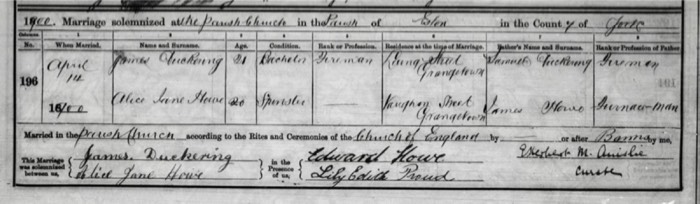 1900. Marriage solemnized at the Parish Church in the Parish of Eston in the County of York
No. When Married. Name and Surname. Age. Condition. Rank or Profession. Residence at the time of Marriage. Father's Name and Surname. Rank or Profession of Father
196
April 14 1900
James Duckering 21 Bachelor Fireman Street Grangetown Duckering Fireman
Alice Jane Howe 20 Spinster Vaughan Street Grangetown James Howe Furnace-man
Married in the Parish Church according to the Rites and Ceremonies of the Church of England by or after Banns by me,
This Marriage was solemnized between us, James Duckering Alice Jane Howe in the Presence of us, Edward Howe Lily Edith Proud
Herbert M. Ainslie
Curate